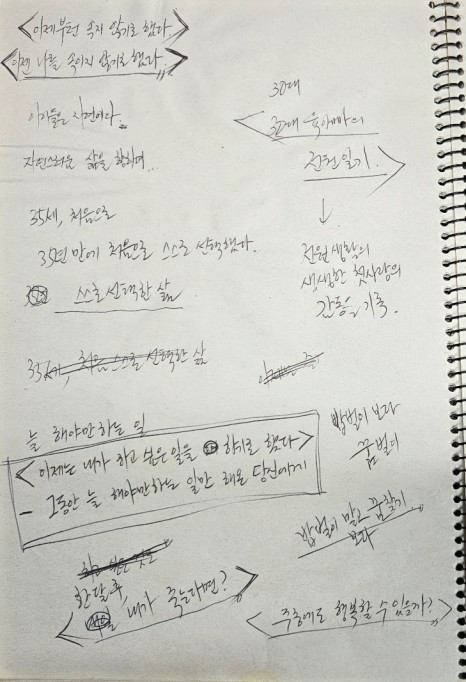 <이제부턴 속지 않기로 했다.>
<이젠 나를 속이지 않기로 했다.>
아이들은 자연이다.
자연스러운 삶을 향하여...
35세, 처음으로
35년 만에 처음으로 스스로 선택했다.
스스로 선택한 삶
35세, 처음 스스로 선택한 삶
늘 해야만 하는 일
<이제는 내가 하고 싶은 일을 하기로 했다>
- 그동안 늘 해야만하는 일만 해온 당신에게
하고 싶은 것도
한달 후,
<내가 죽는다면?>
30대
<30대 육아빠의
전원일기.>
↓
전원생활의
생생한 첫사랑의
감동을 기록.
밥벌이 보다
꿈벌이
밥벌이 말고 꿈찾기
보다
<주중에도 행복할 수 있을까?>